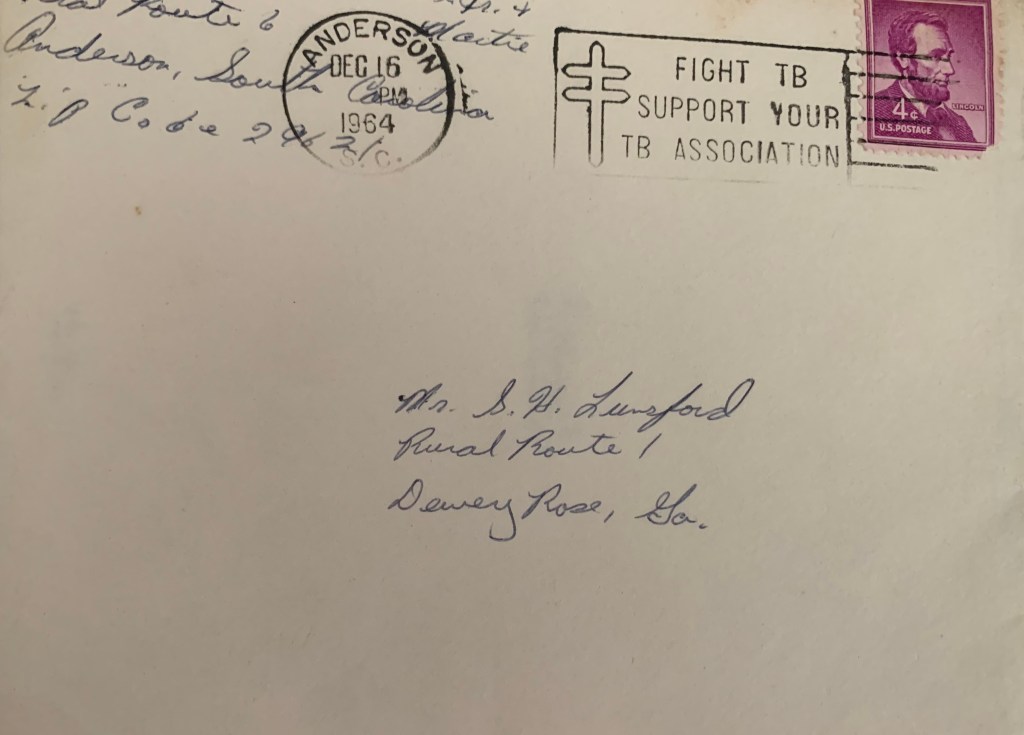 Rural Route 6
Anderson, South Carolina
Zip Code 29621
ANDERSON
DEC 16
PM
1964
S.C.
FIGHT TB
SUPPORT YOUR
TB ASSOCIATION
LINCOLN
4¢
U.S. POSTAGE
Mr. S. H. Lunsford
Rural Route 1
Dewey Rose, Ga.